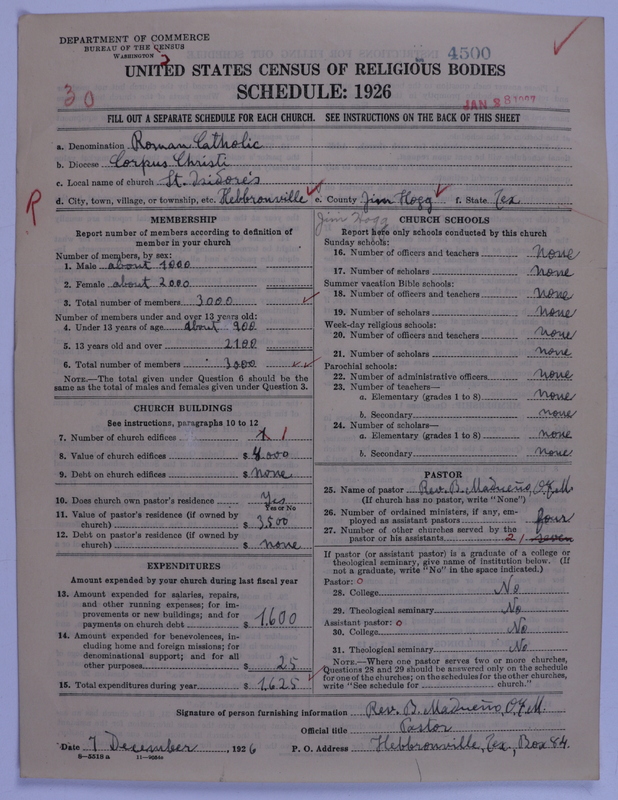 DEPARTMENT OF COMMERCE
BUREAU OF THE CENSUS
WASHINGTON
4500
UNITED STATES CENSUS OF RELIGIOUS BODIES
SCHEDULE: 1926
30
JAN 28 1927
FILL OUT A SEPARATE SCHEDULE FOR EACH CHURCH. SEE INSTRUCTIONS ON THE BACK OF THIS SHEET
a. Denomination Roman Catholic
b. Diocese Corpus Christi
c. Local name of church St. Isidore's
R
d. City, town, village, or township, etc. Hebbronville e. County Jim Hogg f. State Tex
Jim Hogg
MEMBERSHIP
Report number of members according to definition of
member in your church
Number of members, by sex:
1. Male about 1000
2. Female about 2000
3. Total number of members 3000
Number of members under and over 13 years old:
4. Under 13 years of age about 900
5. 13 years old and over 2100
6. Total number of members 3000
NOTE.—The total given under Question 6 should be the
same as the total of males and females given under Question 3.
CHURCH BUILDINGS
See instructions, paragraphs 10 to 12
7. Number of church edifices 1
8. Value of church edifices $ 4000
9. Debt on church edifices $ none
10. Does church own pastor's residence Yes
Yes or No
11. Value of pastor's residence (if owned by
church) $ 3500
12. Debt on pastor's residence (if owned by
church) $ none
EXPENDITURES
Amount expended by your church during last fiscal year
13. Amount expended for salaries, repairs,
and other running expenses; for im-
provements or new buildings; and for
payments on church debt $ 1.600
14. Amount expended for benevolences, in-
cluding home and foreign missions; for
denominational support; and for all
other purposes $ 25
15. Total expenditures during year $ 1.625
CHURCH SCHOOLS
Report here only schools conducted by this church
Sunday schools:
16. Number of officers and teachers none
17. Number of scholars none
Summer vacation Bible schools:
18. Number of officers and teachers none
19. Number of scholars none
Week-day religious schools:
20. Number of officers and teachers none
21. Number of scholars none
Parochial schools:
22. Number of administrative officers none
23. Number of teachers—
a. Elementary (grades 1 to 8) none
b. Secondary none
24. Number of scholars—
a. Elementary (grades 1 to 8) none
b. Secondary none
PASTOR
25. Name of pastor Rev. B. Madueño, O.F.M.
(If church has no pastor, write "None")
26. Number of ordained ministers, if any, em-
ployed as assistant pastors four
27. Number of other churches served by the
pastor or his assistants 21 seven
If pastor (or assistant pastor) is a graduate of a college or
theological seminary, give name of institution below. (If
not a graduate, write "No" in the space indicated.)
Pastor: O
28. College No
29. Theological seminary No
Assistant pastor: O
30. College No
31. Theological seminary No
NOTE.—Where one pastor serves two or more churches,
Questions 28 and 29 should be answered only on the schedule
for one of the churches; on the schedules for the other churches,
write "See schedule for church."
Signature of person furnishing information Rev. B. Madueño, O.F.M.
Official title Pastor
Date 7 December, 1926 P. O. Address Hebbronville, Tex., Box 84.
8—5518 a 11—9034a